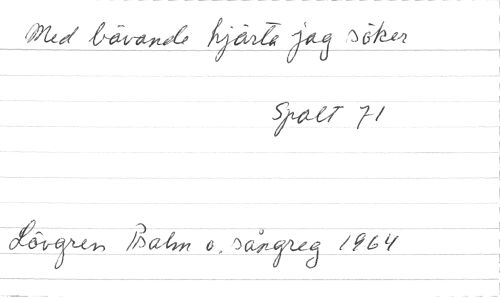 Med bävande hjärta jag söker
Spalt 71
Lövgren Psalm o. sångreg 1964